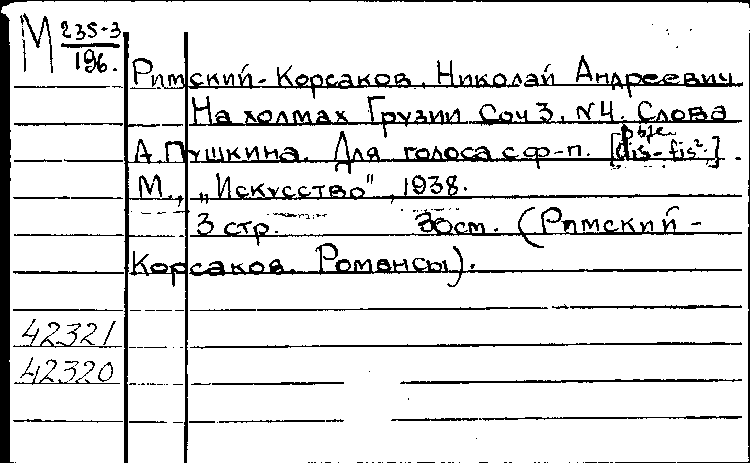 М 235-3
196.
Римский-Корсаков, Николай Андреевич
На холмах Грузии Соч 3, N4. Слова
А.Пушкина. Для голоса с ф-п. [dis-fis².].
М., „Искусство", 1938.
3 стр. 30см. (Римский-
Корсаков. Романсы).
42321
42320